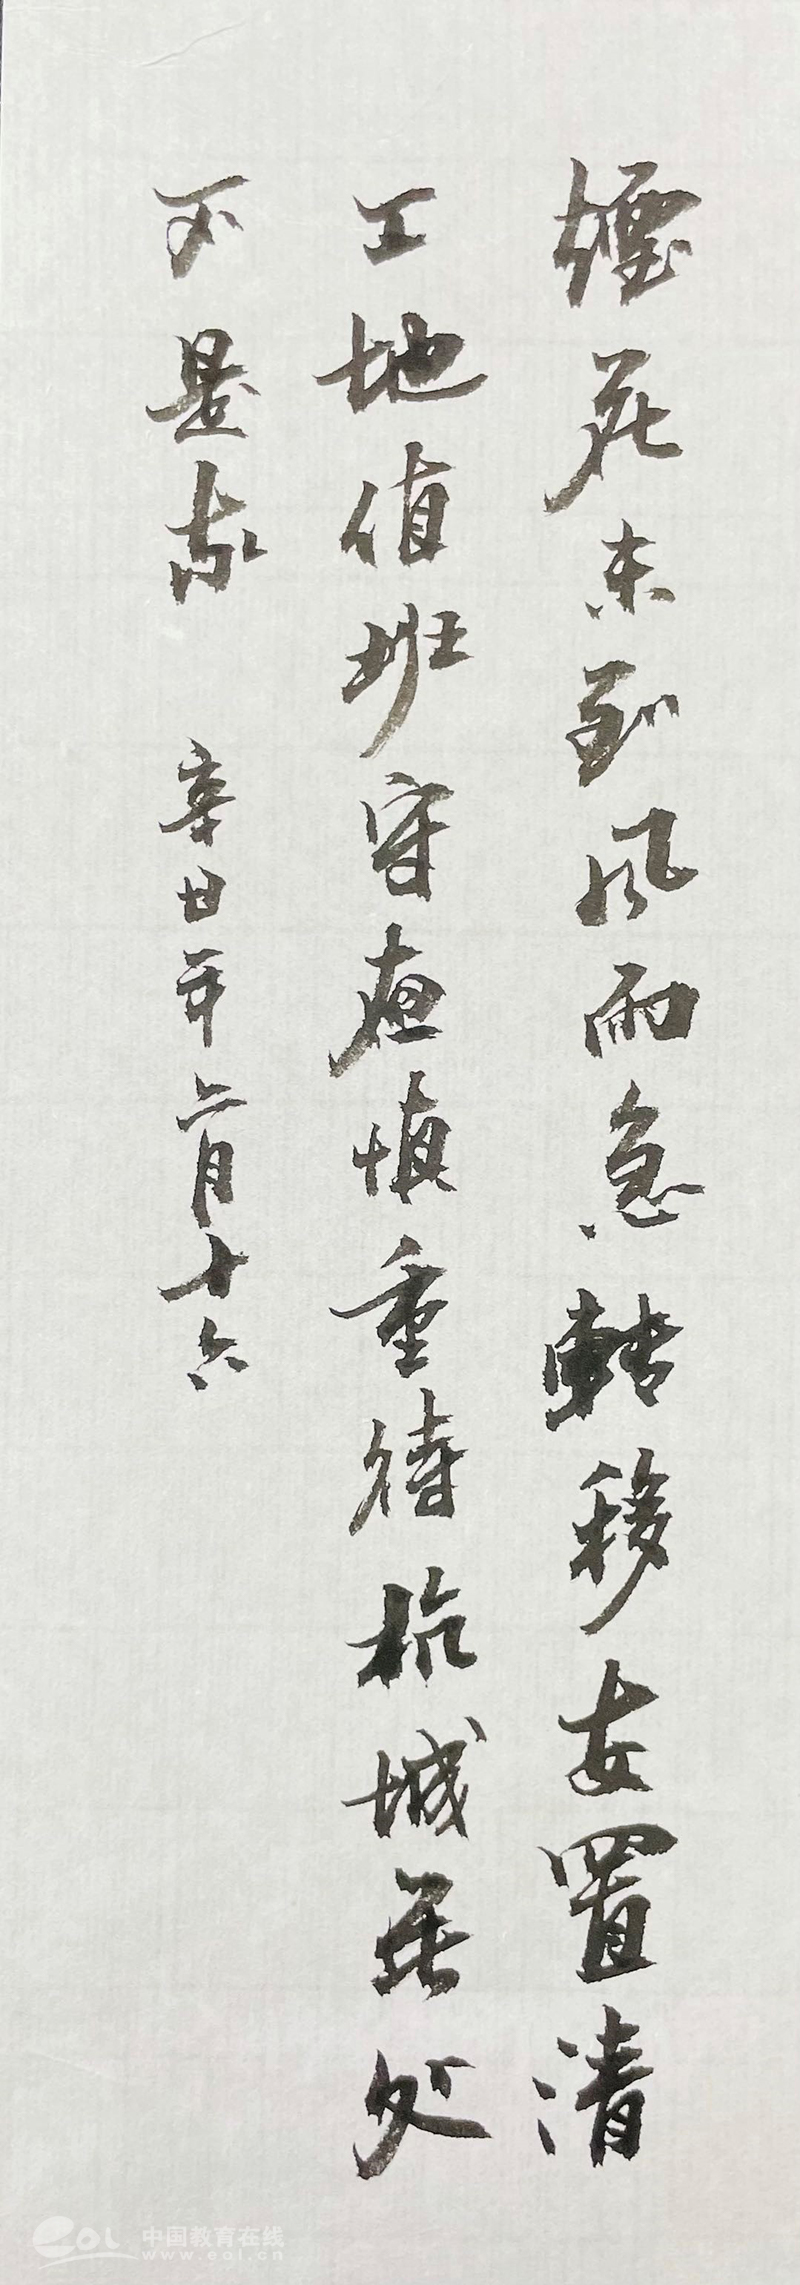 煙花未到风雨急轉移安置清
工地值班守夜慎重待杭城無处
不是家 辛丑年六月十六
中国教育在线
www.eol.cn